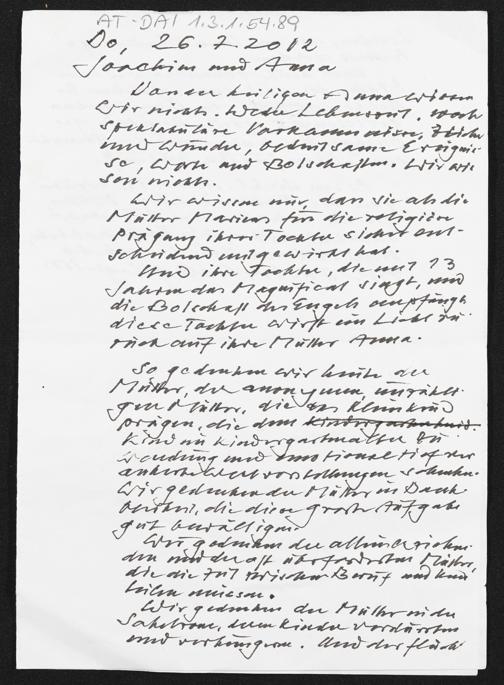 AT-DAI 1.3.1.54.89
Do, 26.7.2012
Joachim und Anna
Von der heiligen Anna wissen
wir nichts. Weder Lebenszeit, noch
spektakuläre Vorkommnisse, Zeichen
und Wunder, bedeutsame Ereignis-
se, Worte und Botschaften. Wir wis-
sen nichts.
Wir wissen nur, dass sie als die
Mutter Mariens für die religiöse
Prägung ihrer Tochter sicher ent-
scheidend mitgewirkt hat.
Und ihre Tochter, die mit 13
Jahren das Magnificat singt, und
die Botschaft des Engels empfängt
diese Tochter wirft ein Licht zu-
rück auf ihre Mutter Anna.
So gedenken wir heute der
Mütter, der anonymen, unzähli-
gen Mütter, die das Kleinkind
prägen, die dem
Kind im Kindergartenalter Zu-
wendung und emotional tief ver-
ankerte Wertvorstellungen schenken.
Wir gedenken der Mütter in Dank-
barkeit, die diese große Aufgabe
gut bewältigen.
Wir gedenken der alleinerziehen-
den und der oft überforderten Mütter,
die die Zeit zwischen Beruf und Kind
teilen müssen.
Wir gedenken der Mütter in der
Sahelzone, deren Kinder verdursten
und verhungern. Und der Flücht